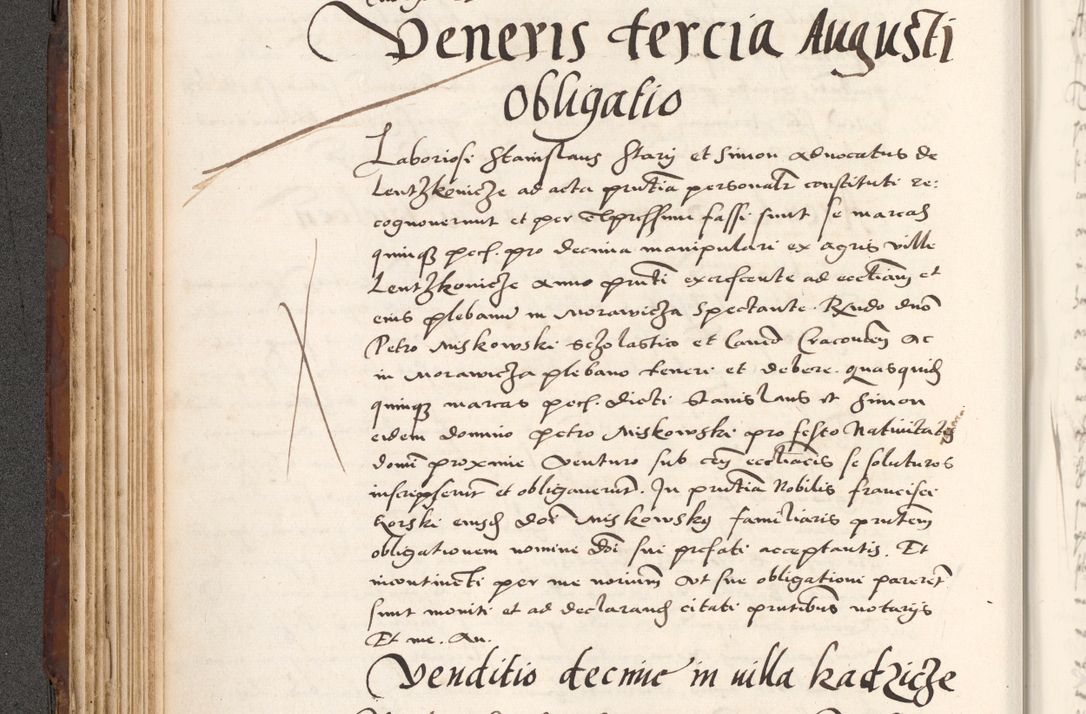 Veneris tercia Augusti
Obligatio
Laboriosi Stanislaus Stary et Simon advocatus de
Lentzkowicze ad acta pñtia personalr constituti re:
cognoverunt et per expressum fassi sunt se marcas
quinq pecf. pro decima manipulari ex agris ville
Lentzkowicze anno pñti excrescente ad ecctiam et
eius plebanu in Morawicza spectante. Rndo dno
Petro Miskowski scholastico et Canco Cracovien ac
in Morawicza plebano teneri et debere. quasquid
quinq marcas pecf. dicti Stanislaus et Simon
eidem domino petro Miskowski pro festo Nativitatis
domi proxime venturo sub cen ecctiacis se soluturos
inscripserut et obligaverut. In pñtia Nobilis francisci
Gorski eiusd doi Miskowsky familiaris pñtem
obligationem nomine doi sui prefati acceptantis. Et
incontineti per me notium ut sue obligationi pareret
sunt moniti et ad declarand citati pñtibus notarijs
Et me. An.
Venditio decime in villa kadzicze